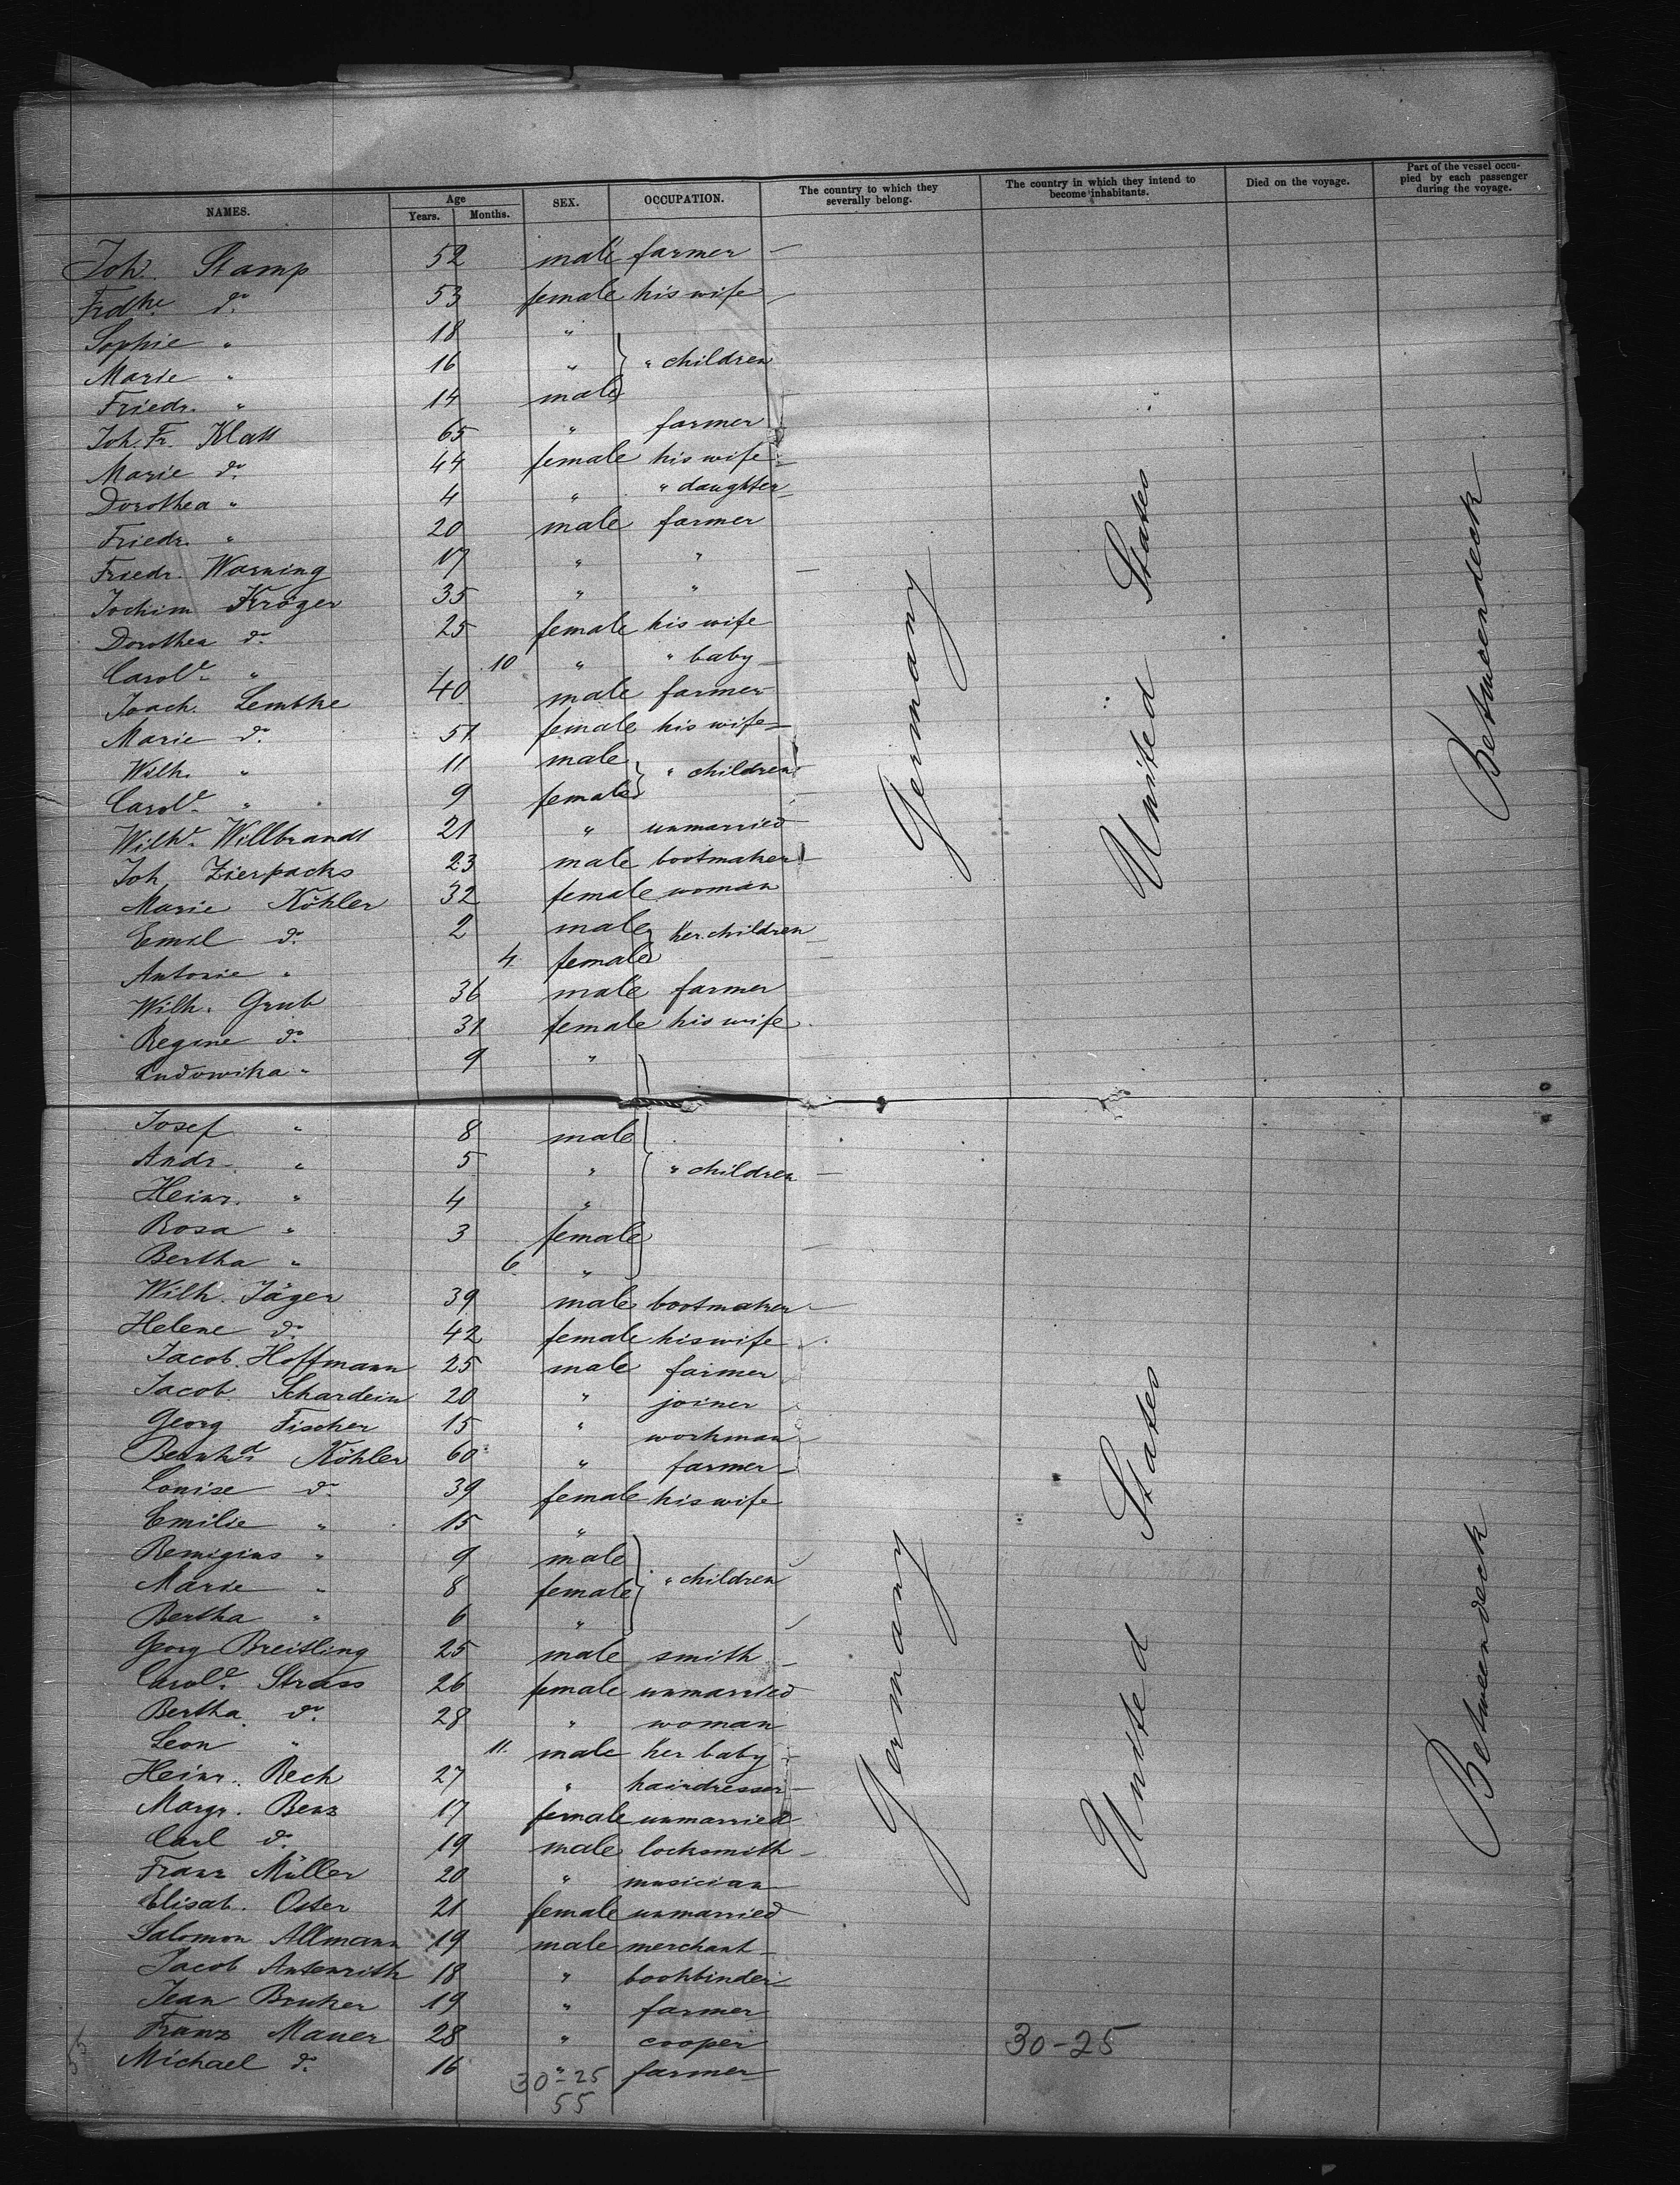 NAMES. Age Years. Months. SEX. OCCUPATION. The country to which they severally belong. The country in which they intend to become inhabitants. Died on the voyage. Part of the vessel occupied by each passenger during the voyage.
Joh. Stamp 52 male farmer —
Frdke do. 53 female his wife —
Sophie " 18 "
Marie " 16 " " children
Friedr. " 14 male
Joh. Fr. Klatt 65 " farmer
Marie do. 44 female his wife —
Dorothea " 4 " " daughter —
Friedr. " 20 male farmer
Friedr. Warning 17 " " —
Jochim Kröger 35 " "
Dorothea do. 25 female his wife
Carole. " 10 " " baby —
Joach. Lembke 40 male farmer
Marie do. 51 female his wife —
Wilh. " 11 male " children
Carole. " 9 female
Wilhe. Willbrandt 21 " unmarried
Joh Zierpacks 23 male bootmaker —
Marie Köhler 32 female woman
Emil do. 2 male her children —
Antonie " 4 female —
Wilh. Grub 36 male farmer
Regine do. 31 female his wife
Ludowika " 9 "
Josef " 8 male
Andr. " 5 " " children —
Heinr. " 4 "
Rosa " 3 female —
Bertha " 6 "
Wilh. Jäger 39 male bootmaker —
Helene do. 42 female his wife
Jacob. Hoffmann 25 male farmer
Jacob Schardein 20 " joiner
Georg Fischer 15 " workman
Bernhd. Köhler 60 " farmer —
Louise do. 39 female his wife
Emilie " 15 "
Remigius " 9 male
Marie " 8 female " children
Bertha " 6 "
Georg Breitling 25 male smith —
Carole. Strass 26 female unmarried
Bertha do. 28 " woman
Leon " 11. male her baby —
Heinr. Rech 27 " hairdresser —
Margr. Benz 17 female unmarried
Carl do. 19 male locksmith —
Franz Müller 20 " musician
Elisab. Oster 21 female unmarried
Salomon Allmann 19 male merchant —
Jacob Autenrith 18 " bookbinder
Jean Bruker 19 " farmer
Franz Mauer 28 " cooper
Michael do. 16 " farmer
Germany
United States
Betweendeck
Germany
United States
Betweendeck
30-25
30-25
55
55